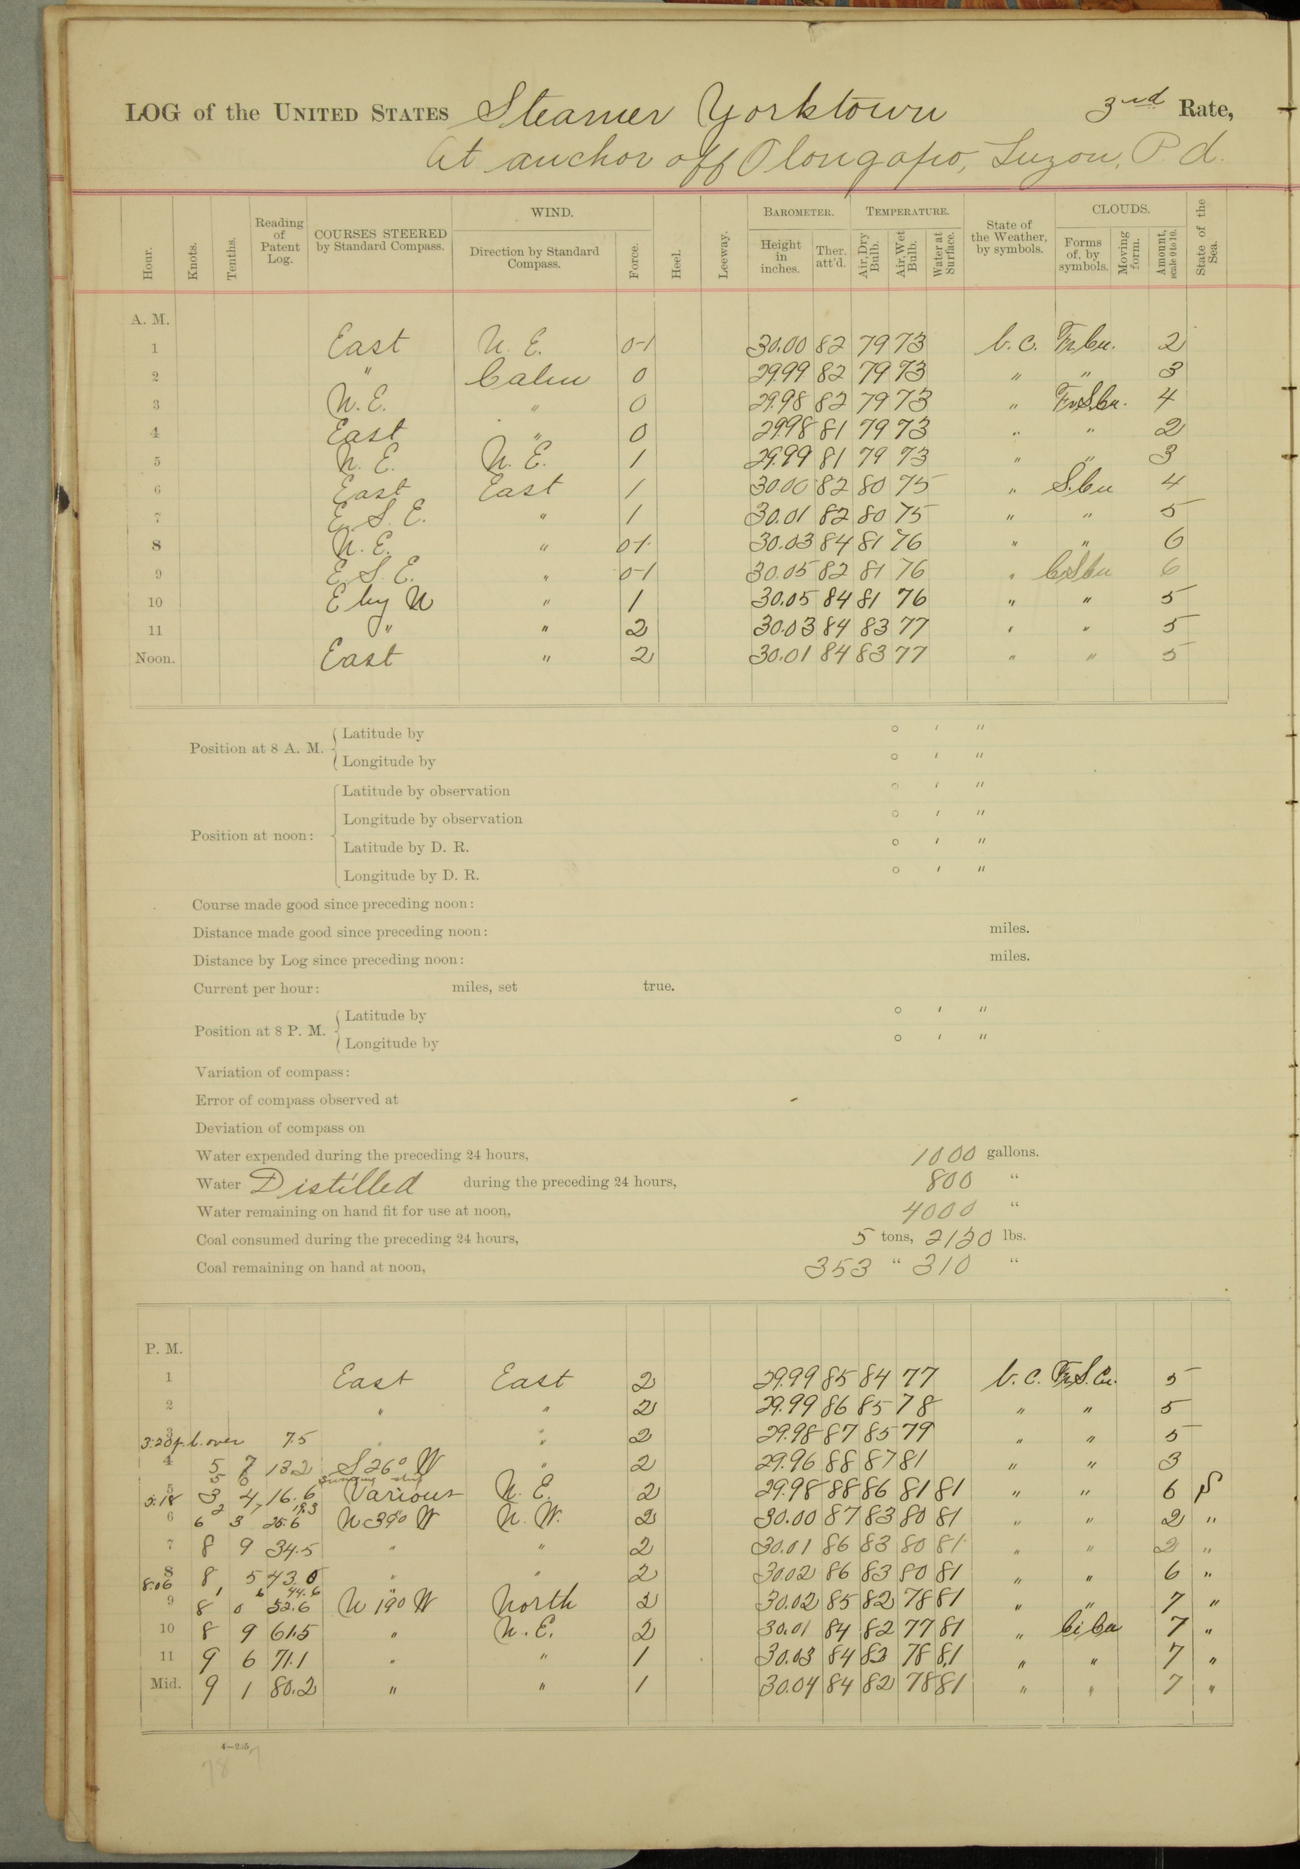 LOG of the UNITED STATES Steamer Yorktown 3rd Rate,
At anchor off Olongapo, Luzon, P. I.
Hour. Knots. Tenths. Reading of Patent Log. COURSES STEERED by Standard Compass. WIND. Direction by Standard Compass. Force. Heel. Leeway. BAROMETER. Height in inches. Ther. att'd. TEMPERATURE. Air, Dry Bulb. Air, Wet Bulb. Water at Surface. State of the Weather, by symbols. CLOUDS. Forms of, by symbols. Moving form. Amount, scale 0 to 10. State of the Sea.
A. M.
1 East N. E. 0-1 30.00 82 79 73 b. c. Fr. Cu. 2
2 " Calm 0 29.99 82 79 73 " " 3
3 N. E. " 0 29.98 82 79 73 " Fr. S. Cu. 4
4 East " 0 29.98 81 79 73 " " 2
5 N. E. N. E. 1 29.99 81 79 73 " " 3
6 East East 1 30.00 82 80 75 " S. Cu 4
7 E. S. E. " 1 30.01 82 80 75 " " 5
8 N. E. " 0-1 30.03 84 81 76 " " 6
9 E. S. E. " 0-1 30.05 82 81 76 " 6
10 E by N " 1 30.05 84 81 76 " " 5
11 " " 2 30.03 84 83 77 " " 5
Noon. East " 2 30.01 84 83 77 " " 5
Position at 8 A. M. Latitude by ° ' "
Longitude by ° ' "
Position at noon: Latitude by observation ° ' "
Longitude by observation ° ' "
Latitude by D. R. ° ' "
Longitude by D. R. ° ' "
Course made good since preceding noon:
Distance made good since preceding noon: miles.
Distance by Log since preceding noon: miles.
Current per hour: miles, set true.
Position at 8 P. M. Latitude by ° ' "
Longitude by ° ' "
Variation of compass:
Error of compass observed at
Deviation of compass on
Water expended during the preceding 24 hours, 1000 gallons.
Water Distilled during the preceding 24 hours, 800 "
Water remaining on hand fit for use at noon, 4000 "
Coal consumed during the preceding 24 hours, 5 tons, 2130 lbs.
Coal remaining on hand at noon, 353 " 310 "
P. M.
1 East East 2 29.99 85 84 77 b. c. Fr. S. Cu. 5
2 " " 2 29.99 86 85 78 " " 5
3 " " 2 29.98 87 85 79 " " 5
3:20 p. l. over 7.5
4 5 7 13.2 S 26° W " 2 29.96 88 87 81 " " 3
5 6 Swinging ship
5 3 4 16.6 Various N. E. 2 29.98 88 86 81 81 " " 6 S
5:18 2 7 19.3
6 6 3 25.6 N 39° W N. W. 2 30.00 87 83 80 81 " " 2 "
7 8 9 34.5 " " 2 30.01 86 83 80 81 " " 2 "
8 8 5 43.0 " " 2 30.02 86 83 80 81 " " 6 "
8:06 1 6 44.6
9 8 0 52.6 N 19° W North 2 30.02 85 82 78 81 " " 7 "
10 8 9 61.5 " N. E. 2 30.01 84 82 77 81 " Ci Cu 7 "
11 9 6 71.1 " " 1 30.03 84 82 78 81 " " 7 "
Mid. 9 1 80.2 " " 1 30.04 84 82 78 81 " " 7 "
4—235
78